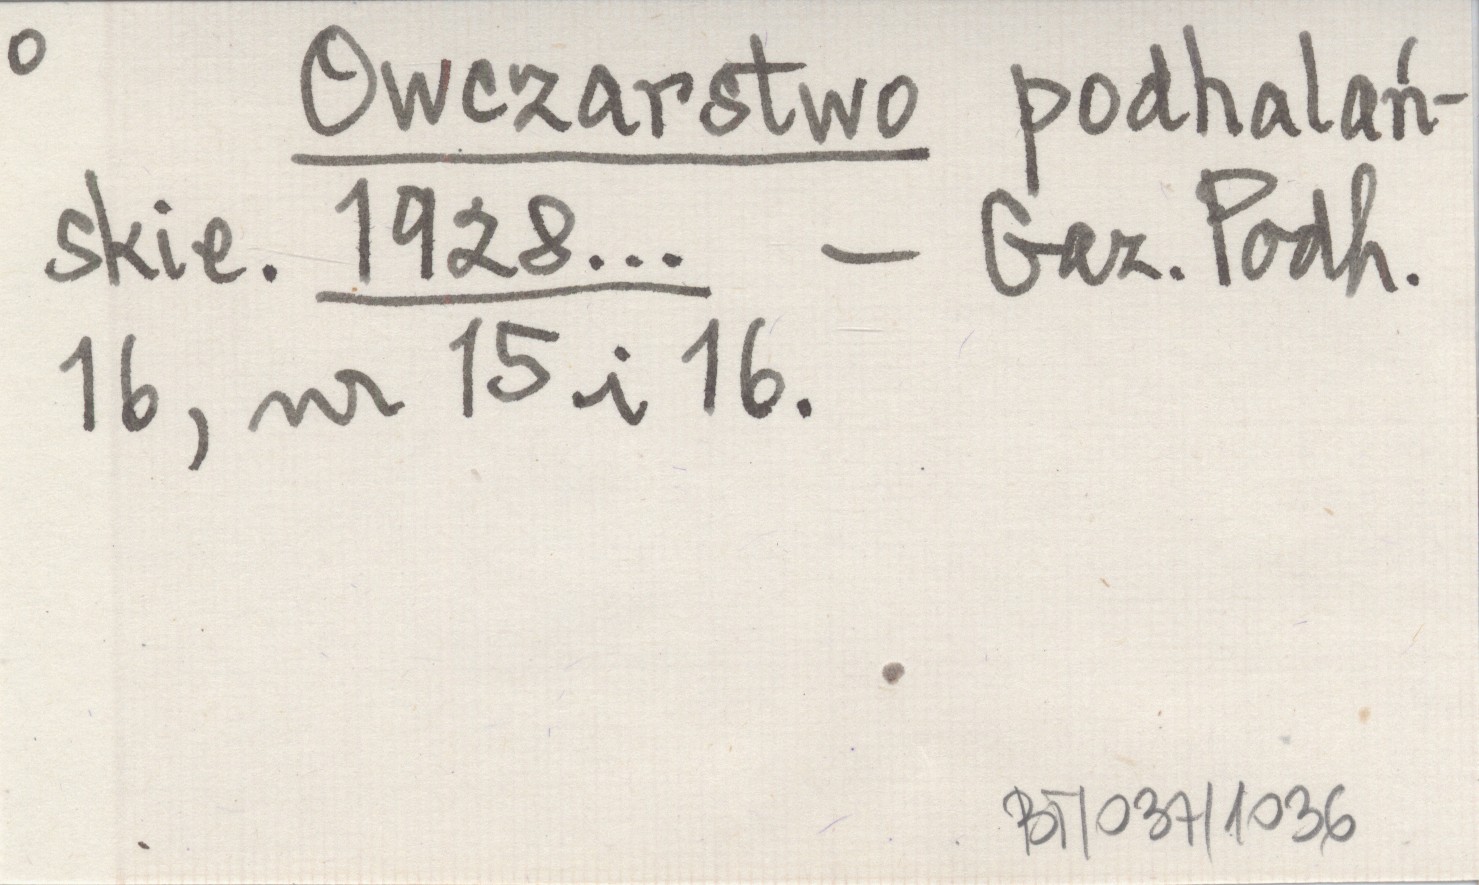 o Owczarstwo podhalań-
skie. 1928... – Gaz. Podh.
16, nr 15 i 16.
BT/037/1036